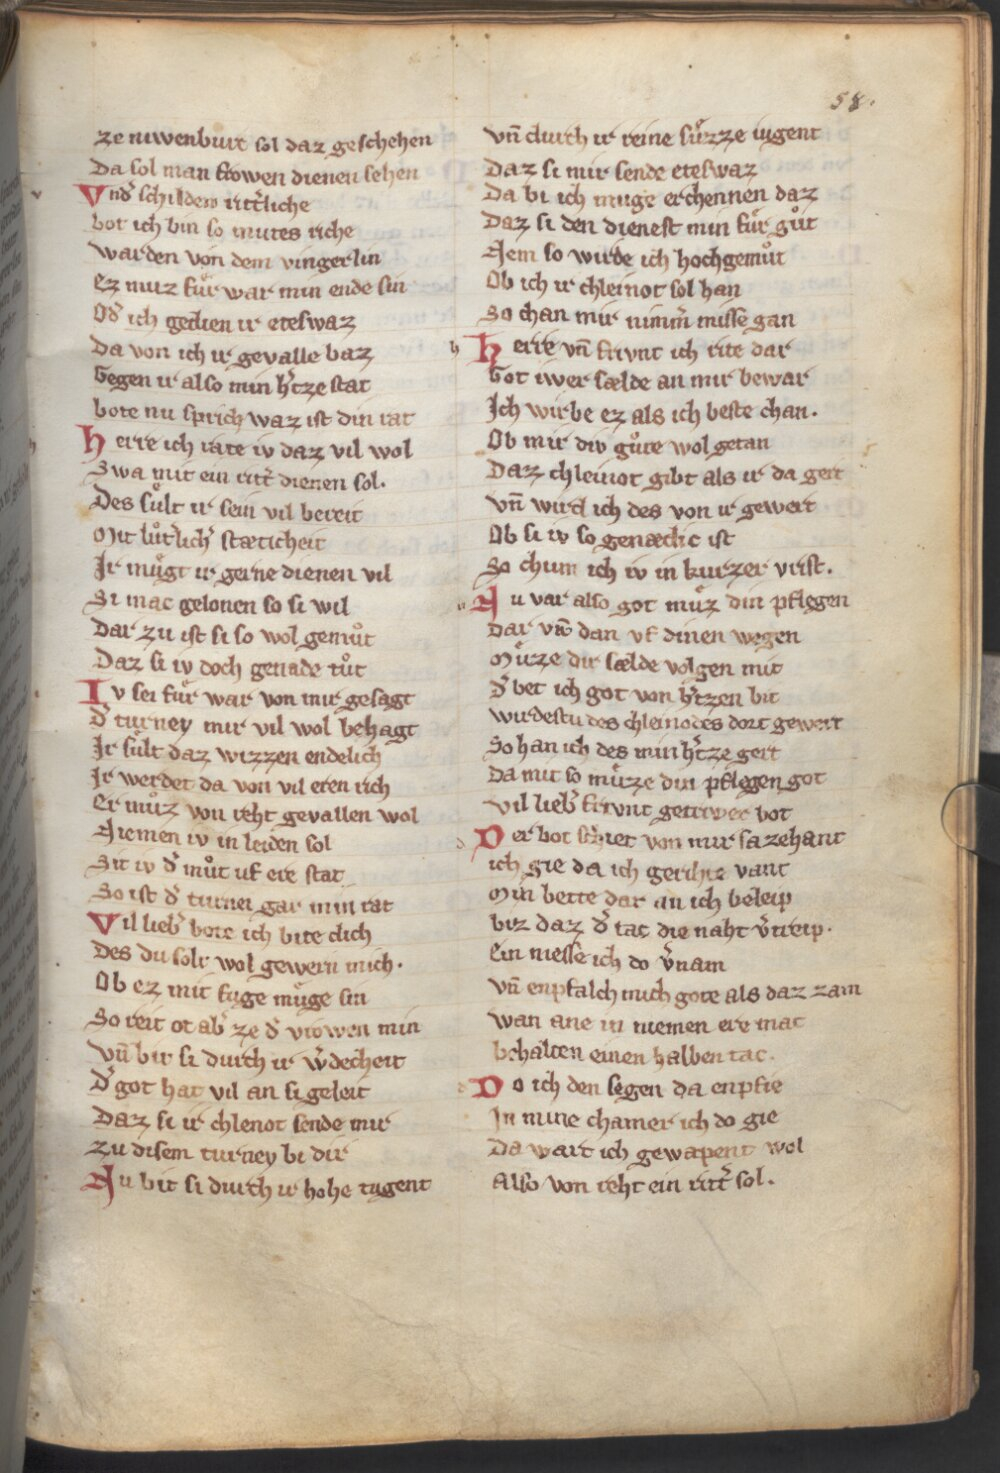 58.
ze niwenburt sol daz geschehen
Da sol man frowen dienen sehen
Vnd̾ schilden ritt̾liche
bot ich bin so mutes riche
warden von dem vingerlin
Ez muz fuͤr war min ende sin
Od̾ ich gedien ir eteswaz
Da von ich ir gevalle baz
Gegen ir also min h̾tze stat
bote nu sprich waz ist din rat
Herre ich rate iv daz vil wol
Swa mit ein ritt̾ dienen sol.
Des suͤlt ir sein vil bereit
Mit luͦt̾lich̾ stæticheit
Ir muͤgt ir gerne dienen vil
Si mac gelonen so si wil
Dar zu ist si so wol gemuͦt
Daz si iv doch genade tuͦt
Iv sei fuͤr war von mir gesagt
D̾ turney mir vil wol behagt
Ir suͤlt daz wizzen endelich
Ir werdet da von vil eren rich
Er muͦz von reht gevallen wol
Niemen iv in leiden sol
Sit iv d̾ muͦt uf ere stat
So ist d̾ turnei gar min rat
Vil lieb̾ bote ich bite dich
Des du solt wol gewern mich.
Ob ez mit fuge muͤge sin
So reit ot ab̾ ze d̾ vrowen min
Vn̄ bit si durch ir w̾decheit
D̾ got hat vil an si geleit
Daz si ir chlenot sende mir
Zu disem turney bi dir
Nu bit si durch ir hohe tugent
Vn̄ durch ir reine suͤzze iugent
Daz si mir sende eteswaz
Da bi ich muge erchennen daz
Daz si den dienest min fuͤr guͦt
Nem so wirde ich hochgemuͦt
Ob ich ir chleinot sol han
So chan mir nimm̾ misse gan
h Herre vn̄ frivnt ich rite dar
Got iwer sælde an mir bewar
Ich wirbe ez als ich beste chan.
Ob mir div guͦte wol getan
Daz chleinot gibt als ir da gert
Vn̄ wird ich des von ir gewert
Ob si iv so genædic ist
So chum ich iv in kurzer vrist.
n Nu var also got muͤz din pflegen
Dar vn̄ dan vf dinen wegen
Muͤzze dir sælde volgen mit
D̾ bet ich got von h̾tzen bit
wirdestu des chleinodes dort gewert
So han ich des min h̾tze gert
Da mit so muͤzze din pflegen got
Vil lieb̾ frivnt getriwer bot
d Der bot schiet von mir sazehant
ich gie da ich gerihte vant
Min bette dar an ich beleip
biz daz d̾ tac die naht v̾treip.
Ein messe ich do v̾nam
Vn̄ enpfalch mich gote als daz zam
wan ane in niemen ere mac
behalten einen halben tac.
d Do ich den segen da enpfie
In mine chamer ich do gie
Da wart ich gewapent wol
Also von reht ein ritt̾ sol.